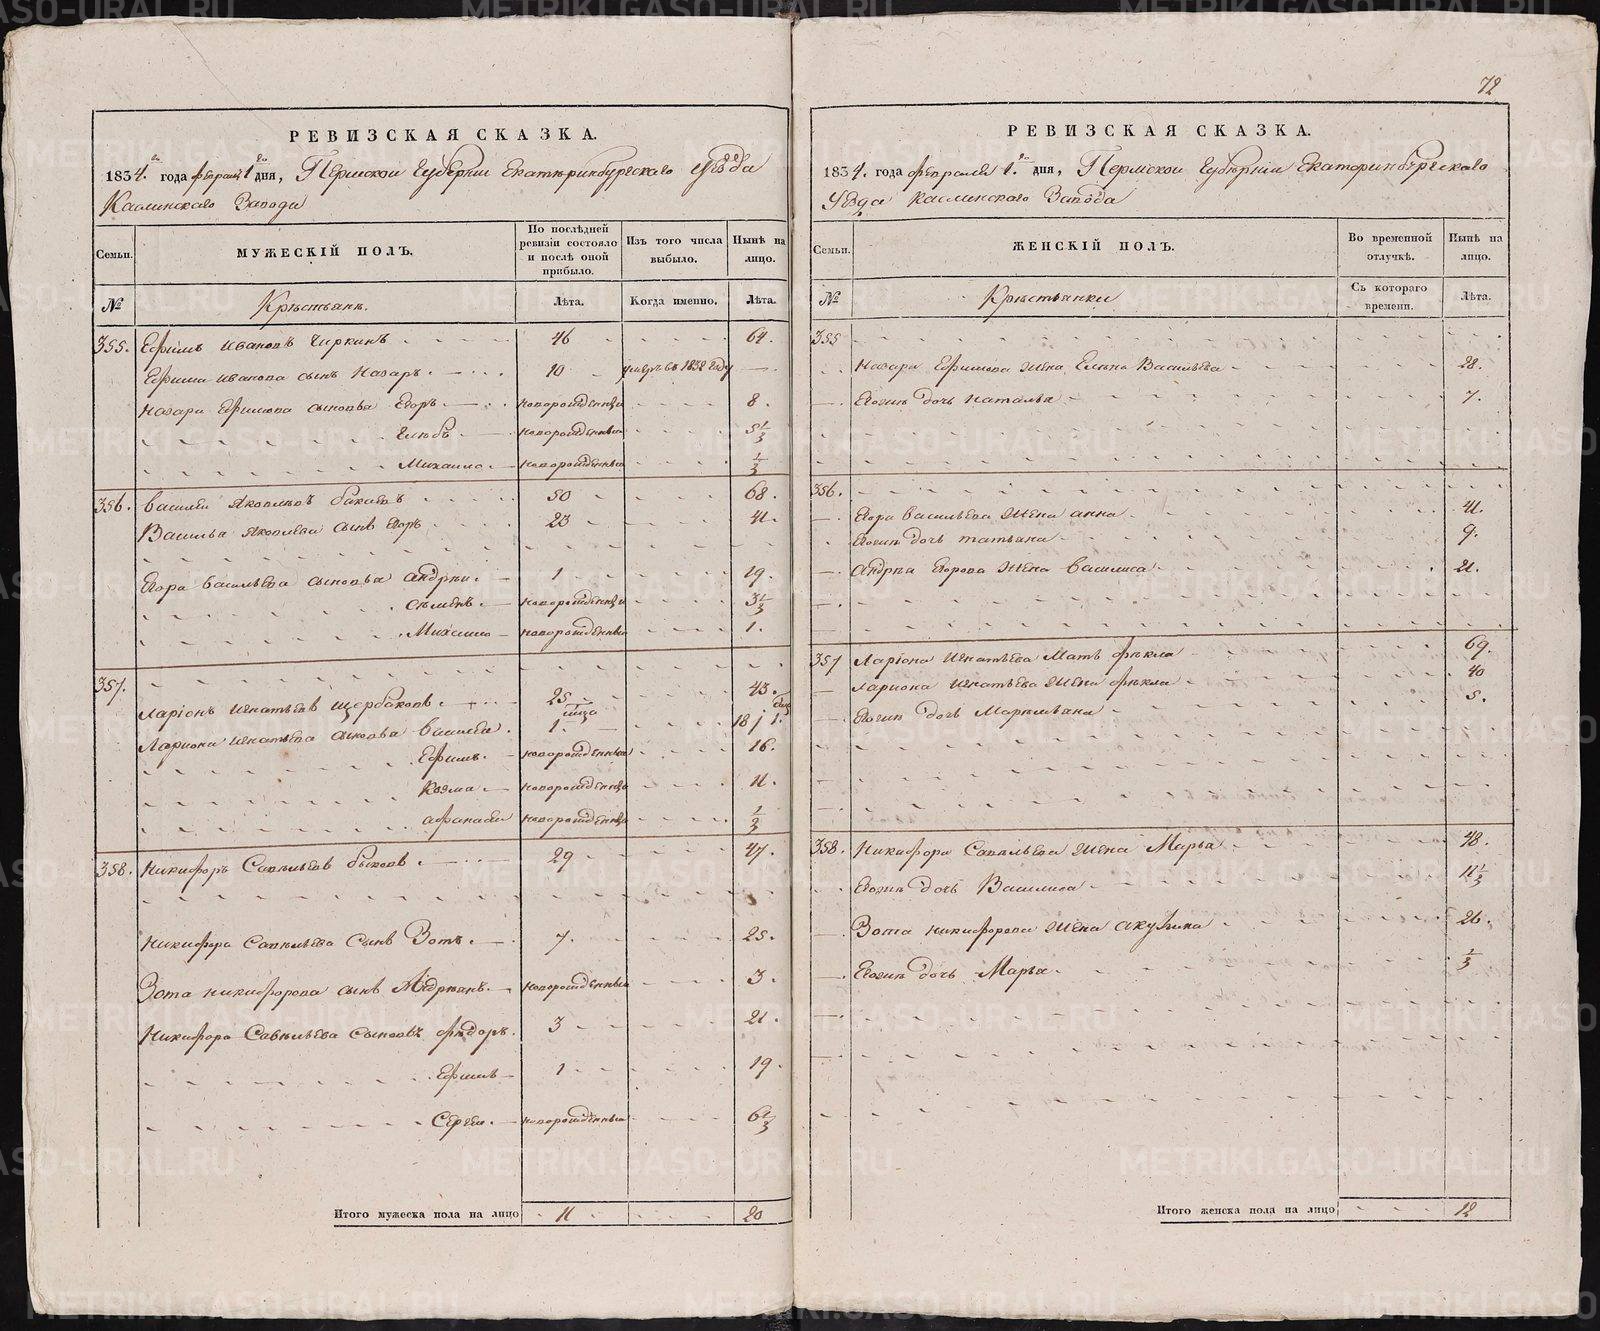 РЕВИЗСКАЯ СКАЗКА.
1834.го года февраля 1го дня, Пермской Губернии Екатеринбургскаго уѣзда
Каслинскаго Завода
Семьи. МУЖЕСКІЙ ПОЛЪ. По послѣдней ревизіи состояло и послѣ оной прибыло. Изъ того числа выбыло. Нынѣ на лицо.
№ Крѣстьянѣ. Лѣта. Когда именно. Лѣта.
355. Ефимъ Ивановъ Чиркинъ 46 64.
Ефима Иванова сынъ Назаръ. 10 умеръ въ 1832 году
Назара Ефимова сыновья Егоръ. новорожденный 8.
Глѣбъ новорожденный 5 1/3
Михаило новорожденный 1/3
356. Василей Яковлевъ 50 68.
Василья Яковлева сынъ Егоръ 23 41.
Егора Васильева сыновья Андрѣи. 1 19.
Сѣменъ. новорожденный 3 1/3
Михаило новорожденный 1.
357.
Ларіонъ Игнатьевъ Щербаковъ. 25 43.
Лариона Игнатьева сыновья Василей. 1. 18
Ефимъ. новорожденный 16.
Козма новорожденный 11.
Афанасей новорожденный 1/3
358. Никифоръ Савѣльевъ Быковъ. 29 47.
Никифора Савѣльева сынъ Зотъ. 7. 25.
Зота Никифорова сынъ Андрѣянъ. новорожденный 3.
Никифора Савѣльева сыновья Фѣдоръ. 3 21.
Ефимъ 1 19.
Сергей. новорожденный 6 2/3
Итого мужеска пола на лицо 11 20
72
РЕВИЗСКАЯ СКАЗКА.
1834. года февраля 1.го дня, Пермской Губерніи Екатеринбургскаго
Уѣзда Каслинскаго Завода
Семьи. ЖЕНСКІЙ ПОЛЪ. Во временной отлучкѣ. Нынѣ на лицо.
№ Крѣстьянки Съ котораго времени. Лѣта.
355
Назара Ефимова жена Елена Васильева 28.
Егожъ дочь Наталья 7.
356.
Егора Васильева жена Анна 41.
Егожъ дочь Татьяна 9.
Андрѣя Егорова жена Василиса 21.
357 Ларіона Игнатьева мать Фѣкла 69.
Лариона Игнатьева жена Фѣкла 40
Егожъ дочь Маремьяна 5.
358. Никифора Савѣльева жена Марья 48.
Егожъ дочь Василиса 11 1/3
Зота Никифорова жена Акулина 26.
Егожъ дочь Марья. 1/3
Итого женска пола на лицо 12
METRIKI.GASO-URAL.RU